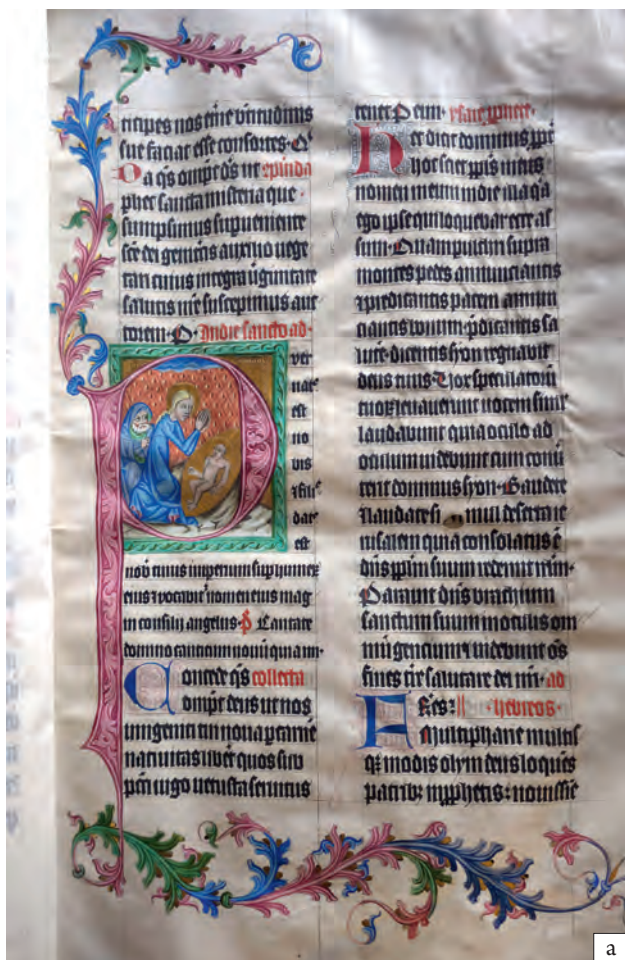 ticipes nos et̃ne btitudinis
sue faciat esse consortes·
Da q̃s omp̃s d̃s ut
sancta misteria que
sumpsimus supueniente
sc̃e dei genitcis auxilio vege
tari cuius integra uginitate
salutis nr̃e suscepimus auc
torem· In die sancto ad·
P
uer
nat᷒
est
no
bis
⁊ fili᷒
dat᷒
est
nob̃ cuius imperium sup humer̃
eius ⁊ vocabit᷑ nomen eius mag
ni consilii angelus· p̃s Cantate
domino canticum nouū quia mi·
Concede q̃s collecta
omp̃s deus ut nos
unigeniti tui noua p carnē
natiuitas lib̃et quos sub
pcti iugo uetusta seruitus
tenet P eun· ysaie pphete·
Hec dicit dominus
hoc sciet ppls meus
nomen meum in die illa q̃a
ego ipse qui loquebar ecce as
sum· Quam pulcri supra
montes pedes annunciantis
⁊ p̃dicantis pacem annun
ciantis bonum· p̃dicantis sa
lutē· dicentis syon regnabit
deus tuus· Uox speculatorū
tuoꝝ leuauerunt uocem simł
laudabunt quia oculo ad
oculum uidebunt cum conũ
terit dominus syon· Gaudete
⁊ laudate si mul deserta ie
rusalem quia consolatus ē
dñs pplm suum redemit irłm·
Parauit dñs brachium
sanctum suum in oculis om
niū gencium ⁊ uidebunt oẽs
fines tr̃e salutare dei nr̃i· ad
Fr̃es: hebreos·
Multiphariē multis
q̃ modis olym deus loquēs
patrib᷒ in pphetis: nouissīe
a